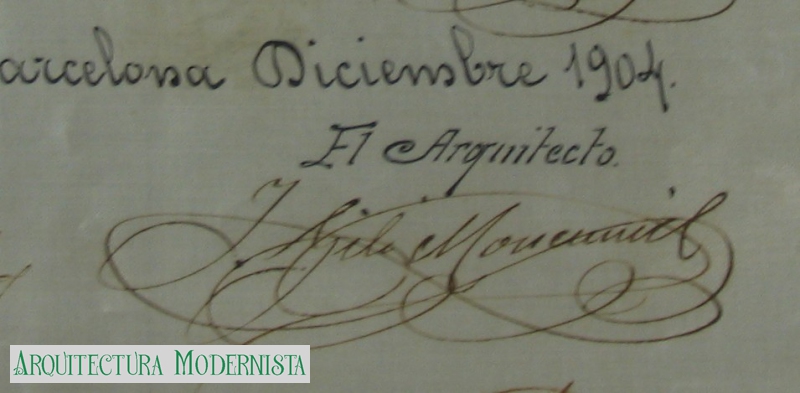 arcelona Diciembre 1904.
El Arquitecto.
I. Gili Moncunill
ARQUITECTURA MODERNISTA